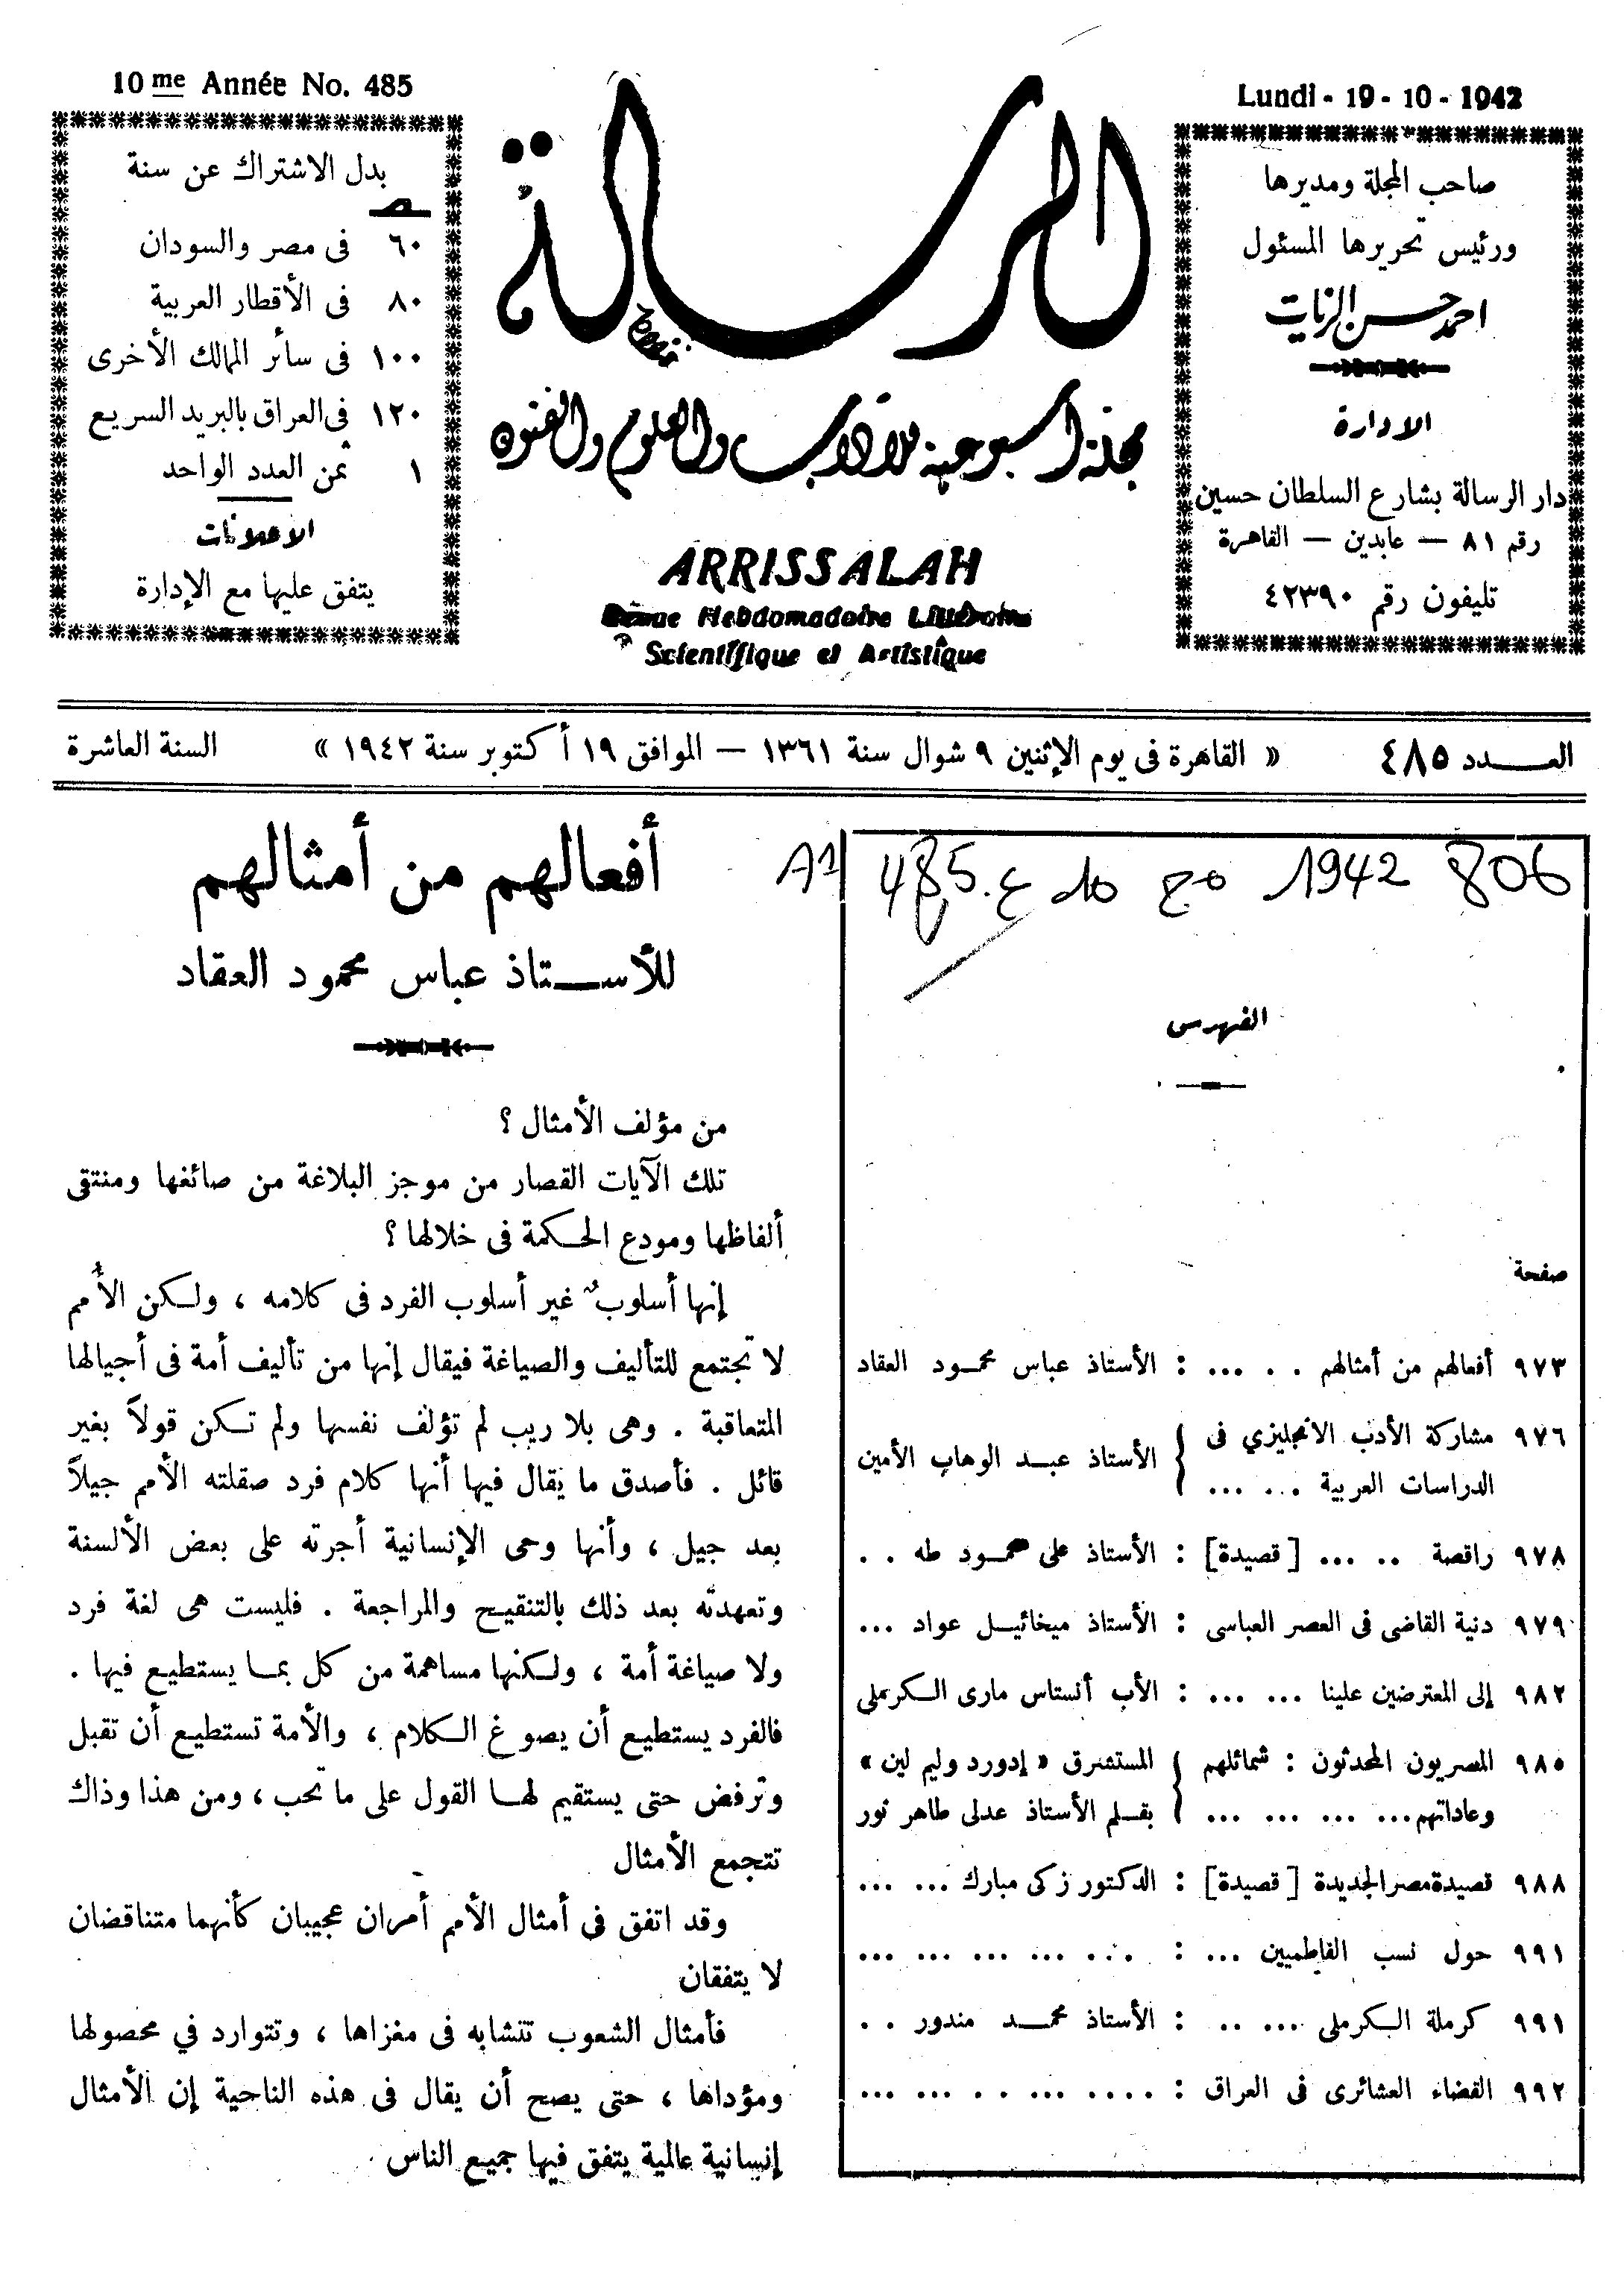 10 me Année No. 485
Lundi - 19 - 10 - 1942
صاحب المجلة ومديرها
ورئيس تحريرها المسئول
احمد حسن الزيات
الادارة
دار الرسالة بشارع السلطان حسين
رقم ٨١ — عابدين — القاهرة
تليفون رقم ٤٢٣٩٠
الرسالة
مجلة أسبوعية للآداب والعلوم والفنون
ARRISSALAH
Revue Hebdomadaire Littéraire
Scientifique et Artistique
بدل الاشتراك عن سنة
٦٠ فى مصر والسودان
٨٠ فى الأقطار العربية
١٠٠ فى سائر الممالك الأخرى
١٢٠ فى العراق بالبريد السريع
١ ثمن العدد الواحد
الاعلانات
يتفق عليها مع الإدارة
العـــدد ٤٨٥ « القاهرة فى يوم الإثنين ٩ شوال سنة ١٣٦١ — الموافق ١٩ أكتوبر سنة ١٩٤٢ » السنة العاشرة
806 1942 مج ع. 485
الفهرس
صفحة
٩٧٣ أفعالهم من أمثالهم . . ... : الأستاذ عباس محمود العقاد
٩٧٦ مشاركة الأدب الانجليزي فى
الدراسات العربية ... ... } الأستاذ عبد الوهاب الأمين
٩٧٨ راقصة .. ... [قصيدة] : الأستاذ على محمود طه . .
٩٧٩ دنية القاضى فى العصر العباسى : الأستاذ ميخائيل عواد ...
٩٨٢ إلى المعترضين علينا ... ... : الأب أنستاس مارى الكرملى
٩٨٥ المصريون المحدثون : شمائلهم } المستشرق « إدورد وليم لين »
وعاداتهم... ... ... ... } بقلم الأستاذ عدلى طاهر نور
٩٨٨ قصيدة مصر الجديدة [قصيدة] : الدكتور زكى مبارك ... ...
٩٩١ حول نسب الفاطميين ... : ... ... ... ... ... ...
٩٩١ كرملة الكرملى ... .. : الأستاذ محمد مندور . .
٩٩٢ القضاء العشائرى فى العراق : .... ... . . ... ...
أفعالهم من أمثالهم
للأستاذ عباس محمود العقاد
من مؤلف الأمثال ؟
تلك الآيات القصار من موجز البلاغة من صائغها ومنتقى
ألفاظها ومودع الحكمة فى خلالها ؟
إنها أسلوب غير أسلوب الفرد فى كلامه ، ولكن الأمم
لا تجتمع للتأليف والصياغة فيقال إنها من تأليف أمة فى أجيالها
المتعاقبة . وهى بلا ريب لم تؤلف نفسها ولم تكن قولاً بغير
قائل . فأصدق ما يقال فيها أنها كلام فرد صقلته الأمم جيلاً
بعد جيل ، وأنها وحى الإنسانية أجرته على بعض الألسنة
وتعهدته بعد ذلك بالتنقيح والمراجعة . فليست هى لغة فرد
ولا صياغة أمة ، ولكنها مساهمة من كل بما يستطيع فيها .
فالفرد يستطيع أن يصوغ الكلام ، والأمة تستطيع أن تقبل
وترفض حتى يستقيم لها القول على ما تحب ، ومن هذا وذاك
تتجمع الأمثال
وقد اتفق فى أمثال الأمم أمران عجيبان كأنهما متناقضان
لا يتفقان
فأمثال الشعوب تتشابه فى مغزاها ، وتتوارد في محصولها
ومؤداها ، حتى يصح أن يقال فى هذه الناحية إن الأمثال
إنسانية عالمية يتفق فيها جميع الناس